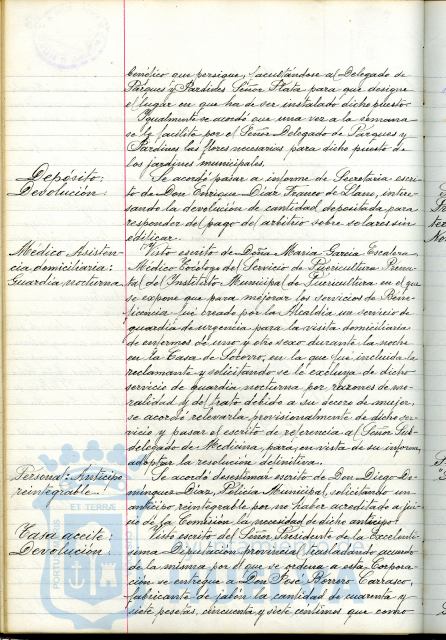 benéfico que persigue, facultándose al Delegado de
Parques y Jardines Señor Plata para que designe
el lugar en que ha de ser instalado dicho puesto.
Igualmente se acordó que una vez a la semana
se le facilite por el Señor Delegado de Parques y
Jardines las flores necesarias para dicho puesto de
los jardines municipales.
Depósito:
Devolución.
Se acordó pasar a informe de Secretaría escri-
to de Don Enrique Díaz Franco de Llano, intere-
sando la devolución de cantidad depositada para
responder del pago de arbitrio sobre solares sin
edificar.
Médico Asisten-
cia domiciliaria:
Guardia nocturna.
Visto escrito de Doña María García Escalera,
Médico Tocólogo del Servicio de Puericultura Prena-
tal del Instituto Municipal de Puericultura en el que
se expone que para mejorar los servicios de Bene-
ficencia fué creado por la Alcaldía un servicio de
guardia de urgencia para la visita domiciliaria
de enfermos de uno y otro sexo durante la noche
en la Casa de Socorro, en la que fué incluida la
reclamante y solicitando se le excluya de dicho
servicio de guardia nocturna por razones de mo-
ralidad y del trato debido a su decoro de mujer,
se acordó relevarla provisionalmente de dicho ser-
vicio y pasar el escrito de referencia al Señor Sub-
delegado de Medicina, para, en vista de su informe
adoptar la resolución definitiva.
Personal: Anticipo
reintegrable.
Se acordó desestimar escrito de Don Diego Do-
mínguez Díaz, Policía Municipal, solicitando un
anticipo reintegrable por no haber acreditado a jui-
cio de la Comisión la necesidad de dicho anticipo.
Tasa aceite:
Devolución.
Visto escrito del Señor Presidente de la Excelentí-
sima Diputación provincial trasladando acuerdo
de la misma por el que se ordena a esta Corpora-
ción se entregue a Don José Borrero Carrasco,
fabricante de jabón la cantidad de cuarenta y
siete pesetas, cincuenta y siete céntimos que como
PORTUS
ET TERRAE